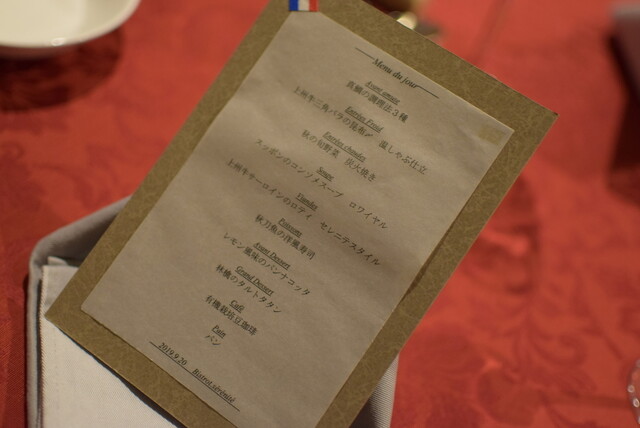 Menu du jour
Avant amuse
真鯛の調理法3種
Entrées Froid
上州牛三角バラの昆布〆 温しゃぶ仕立
Entrées chaudes
秋の旬野菜 炭火焼き
Soupe
スッポンのコンソメスープ ロワイヤル
Viandes
上州牛サーロインのロティ セレニテスタイル
Poissons
秋刀魚の洋風寿司
Avant Dessert
レモン風味のパンナコッタ
Grand Dessert
林檎のタルトタタン
Café
有機栽培豆珈琲
Pain
パン
2019.9.20 Bistrot sérénité